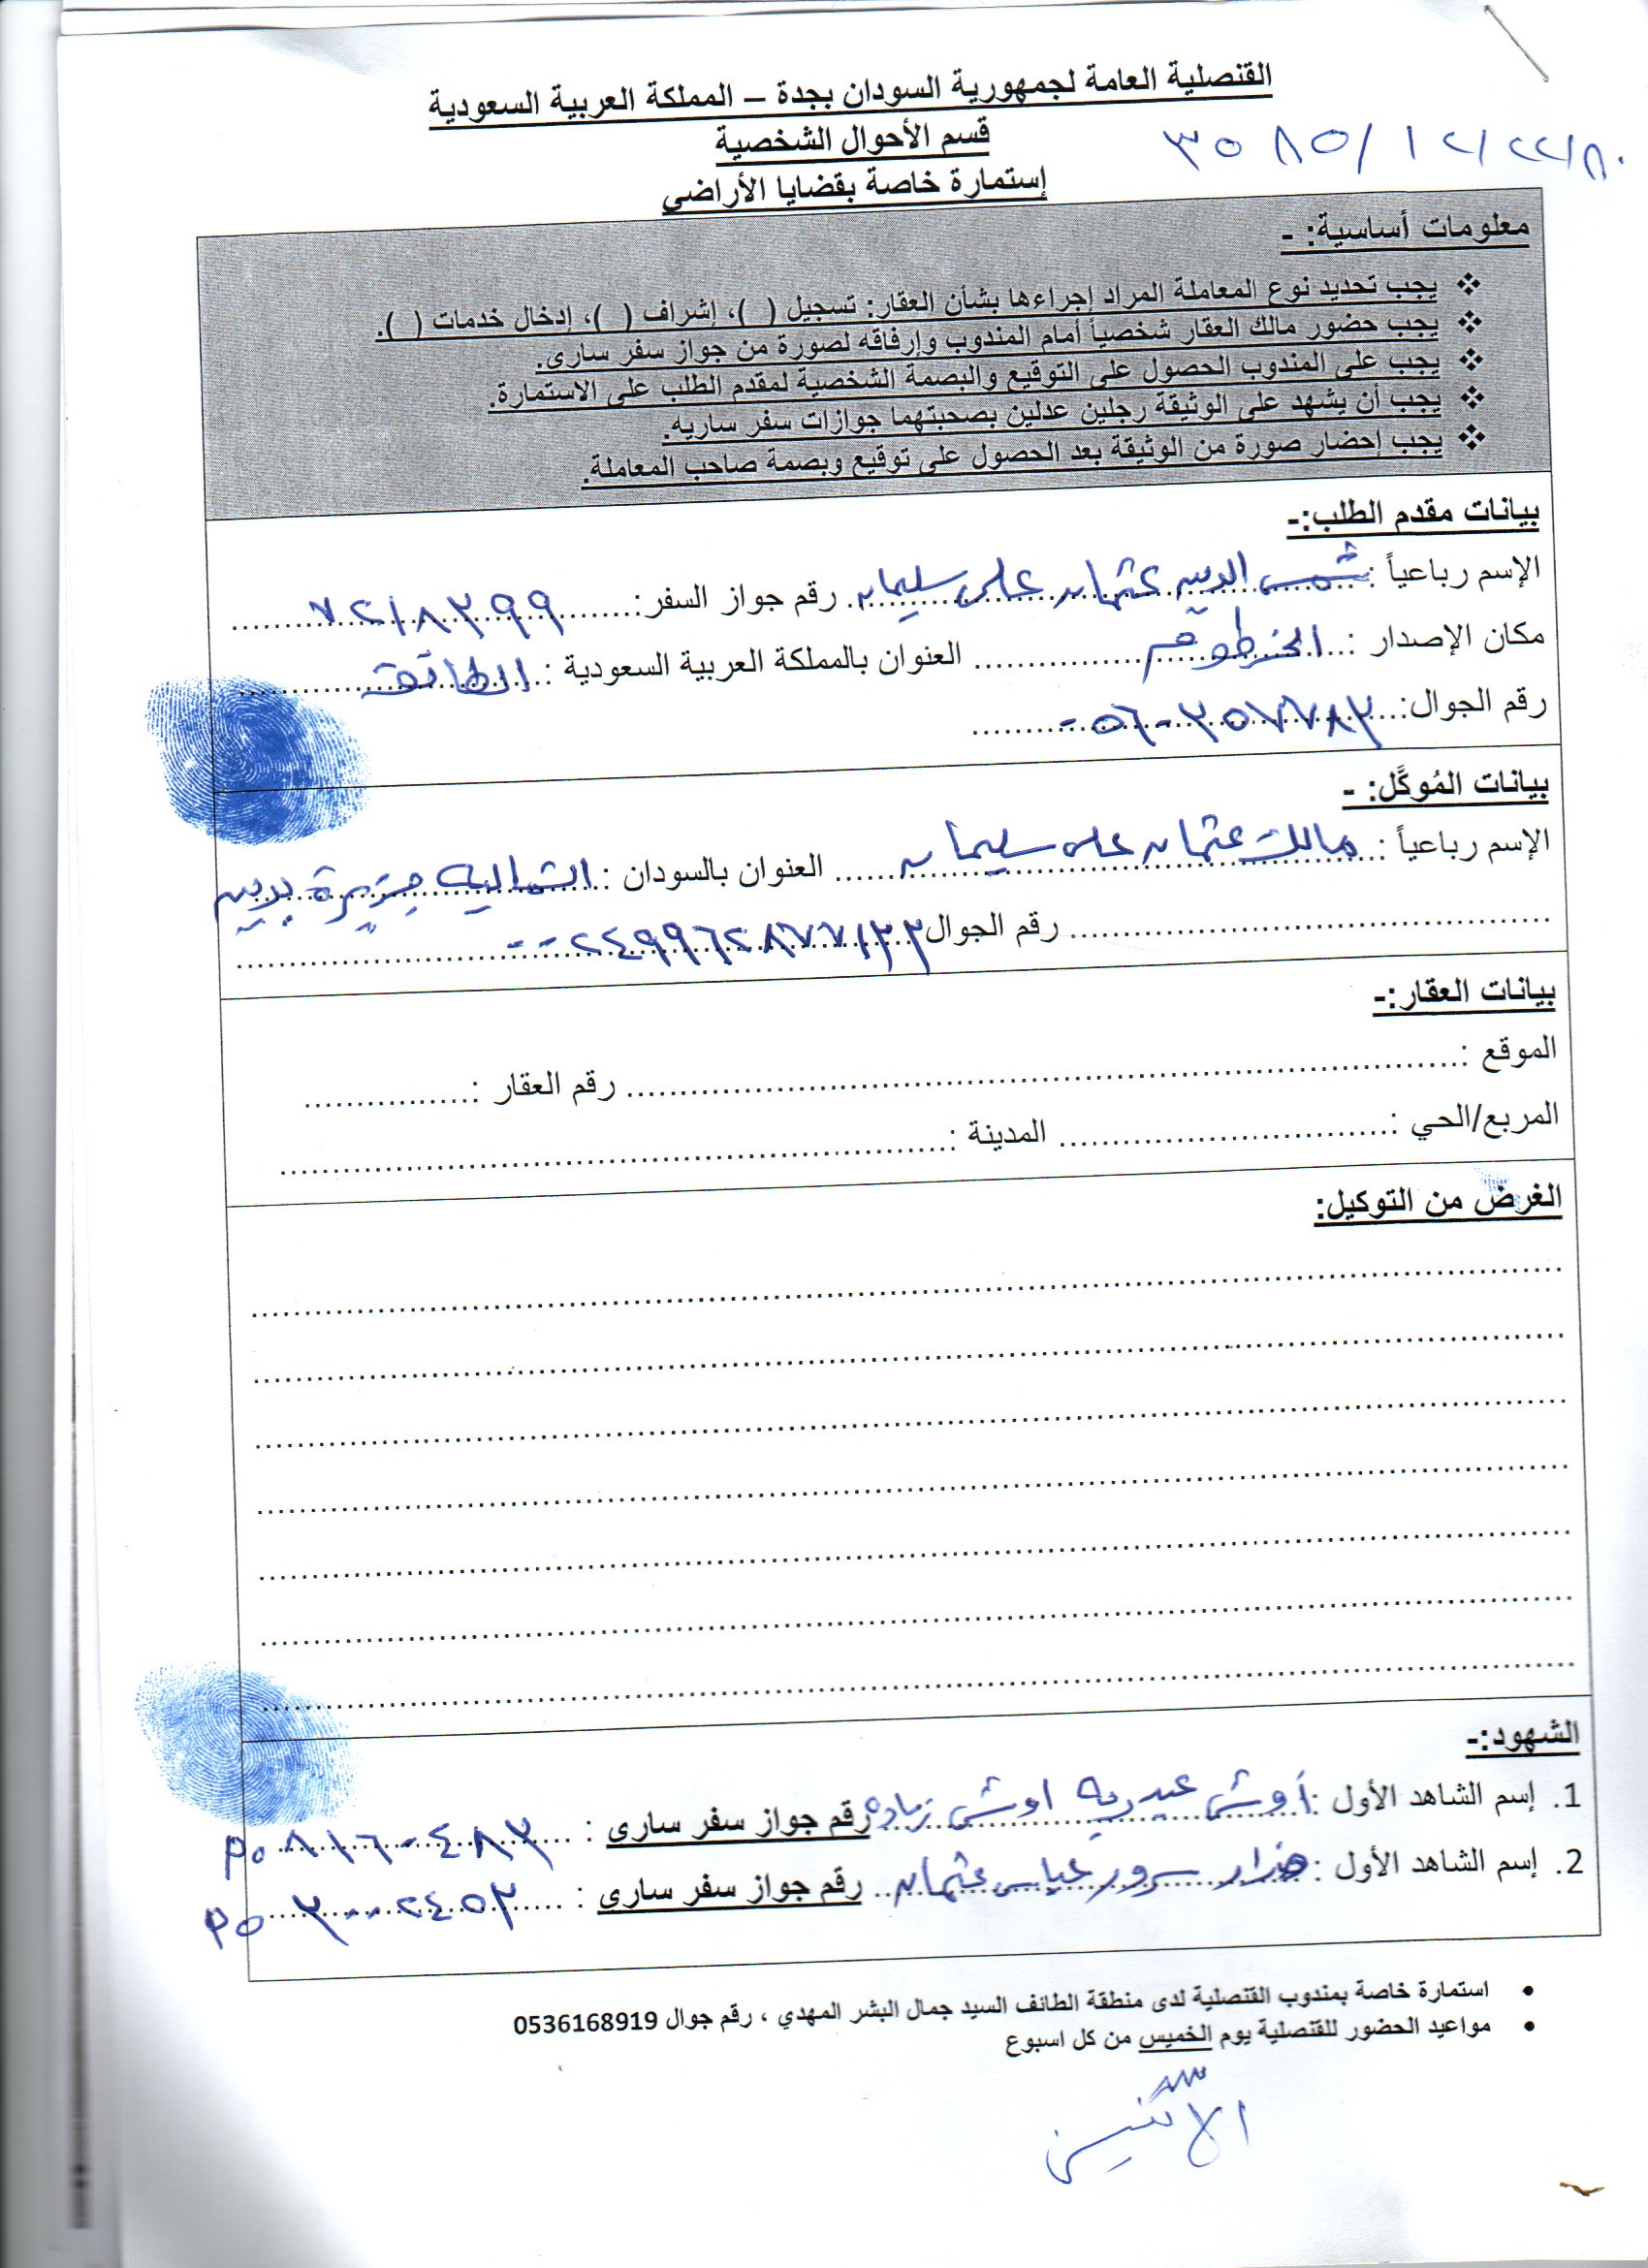 القنصلية العامة لجمهورية السودان بجدة – المملكة العربية السعودية
قسم الأحوال الشخصية
إستمارة خاصة بقضايا الأراضي
معلومات أساسية: -
❖ يجب تحديد نوع المعاملة المراد إجراءها بشأن العقار: تسجيل ( )، إشراف ( )، إدخال خدمات ( ).
❖ يجب حضور مالك العقار شخصياً أمام المندوب وإرفاقه لصورة من جواز سفر سارى.
❖ يجب على المندوب الحصول على التوقيع والبصمة الشخصية لمقدم الطلب على الاستمارة.
❖ يجب أن يشهد على الوثيقة رجلين عدلين بصحبتهما جوازات سفر ساريه.
❖ يجب إحضار صورة من الوثيقة بعد الحصول على توقيع وبصمة صاحب المعاملة.
بيانات مقدم الطلب:-
الإسم رباعياً : شمس الدين عثمان على سليمان رقم جواز السفر: ٧٢١٨٣٩٩
مكان الإصدار : الخرطوم العنوان بالمملكة العربية السعودية : الطائف
رقم الجوال: ٠٥٦٠٣٥٧٧٨٣
بيانات المُوكَّل: -
الإسم رباعياً : مالك عثمان على سليمان العنوان بالسودان : الشمالية جزيرة بدين
رقم الجوال ٠٠٢٤٩٩٦٢٨٧٧١٣٣
بيانات العقار:-
الموقع : رقم العقار :
المربع/الحي : المدينة :
الغرض من التوكيل:
الشهود:-
1. إسم الشاهد الأول : أوشى عبد ربه اوشى زياده رقم جواز سفر سارى : P٠٨١٦٠٤٨٣
2. إسم الشاهد الأول : سرور عباس عثمان رقم جواز سفر سارى : P٠٣٠٠٢٤٥٣
• استمارة خاصة بمندوب القنصلية لدى منطقة الطائف السيد جمال البشر المهدي ، رقم جوال 0536168919
• مواعيد الحضور للقنصلية يوم الخميس من كل اسبوع
الاثنين